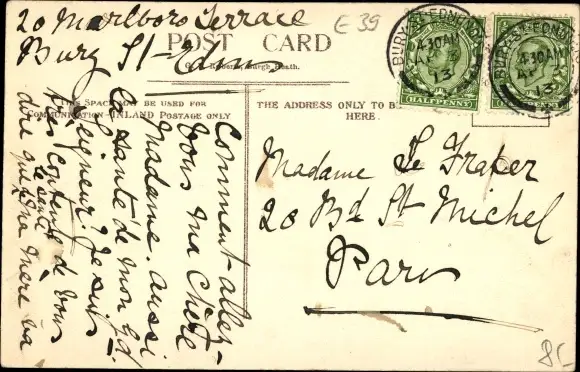 20 Marlboro Terrace
Bury St-Edm
E 39
POST CARD
Burgh Heath.
THIS SPACE MAY BE USED FOR
COMMUNICATION—INLAND POSTAGE ONLY
THE ADDRESS ONLY TO BE
HERE.
BURY ST EDMUNDS
4.30 AM
13
BURY ST EDMUNDS
4.30 AM
13
HALFPENNY
Comment-allez-
vous ma chère
madame. aussi
la santé de mon gd.
Seigneur? Je suis
très contente de vous
dire que ma mère va
Madame Le
20 Bd St Michel
Paris
8c